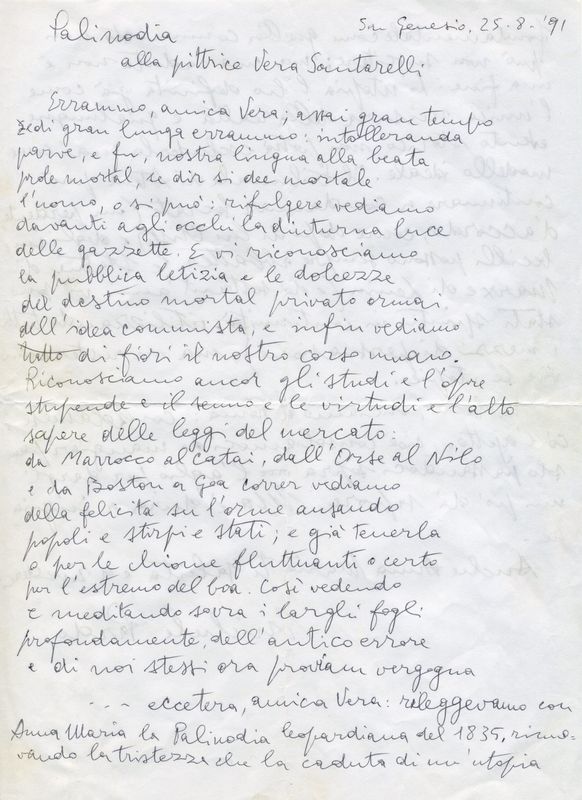 San Genesio, 25.8.'91
Palinodia
alla pittrice Vera Santarelli
Errammo, amica Vera; assai gran tempo
e di gran lunga errammo: intolleranda
parve, e fu, nostra lingua alla beata
prole mortal, se dir si dee mortale
l'uomo, o si può: rifulgere vediamo
davanti agli occhi la diuturna luce
delle gazzette. E vi riconosciamo
la pubblica letizia e le dolcezze
del destino mortal privato ormai
dell'idea comunista, e infin vediamo
tutto di fiori il nostro corso umano.
Riconosciamo ancor gli studi e l'opre
stupende e il senno e le virtudi e l'alto
sapere delle leggi del mercato:
da Marrocco al Catai, dall'Orse al Nilo
e da Boston a Goa correr vediamo
della felicità su l'orme ansando
popoli e stirpi e stati; e già tenerla
o per le chiome fluttuanti o certo
per l'estremo del boa. Così vedendo
e meditando sovra i larghi fogli
profondamente, dell'antico errore
e di noi stessi ora proviam vergogna
... eccetera, amica Vera: rileggevamo con
Anna Maria la Palinodia leopardiana del 1835, rinno-
vando la tristezza che la caduta di un'utopia